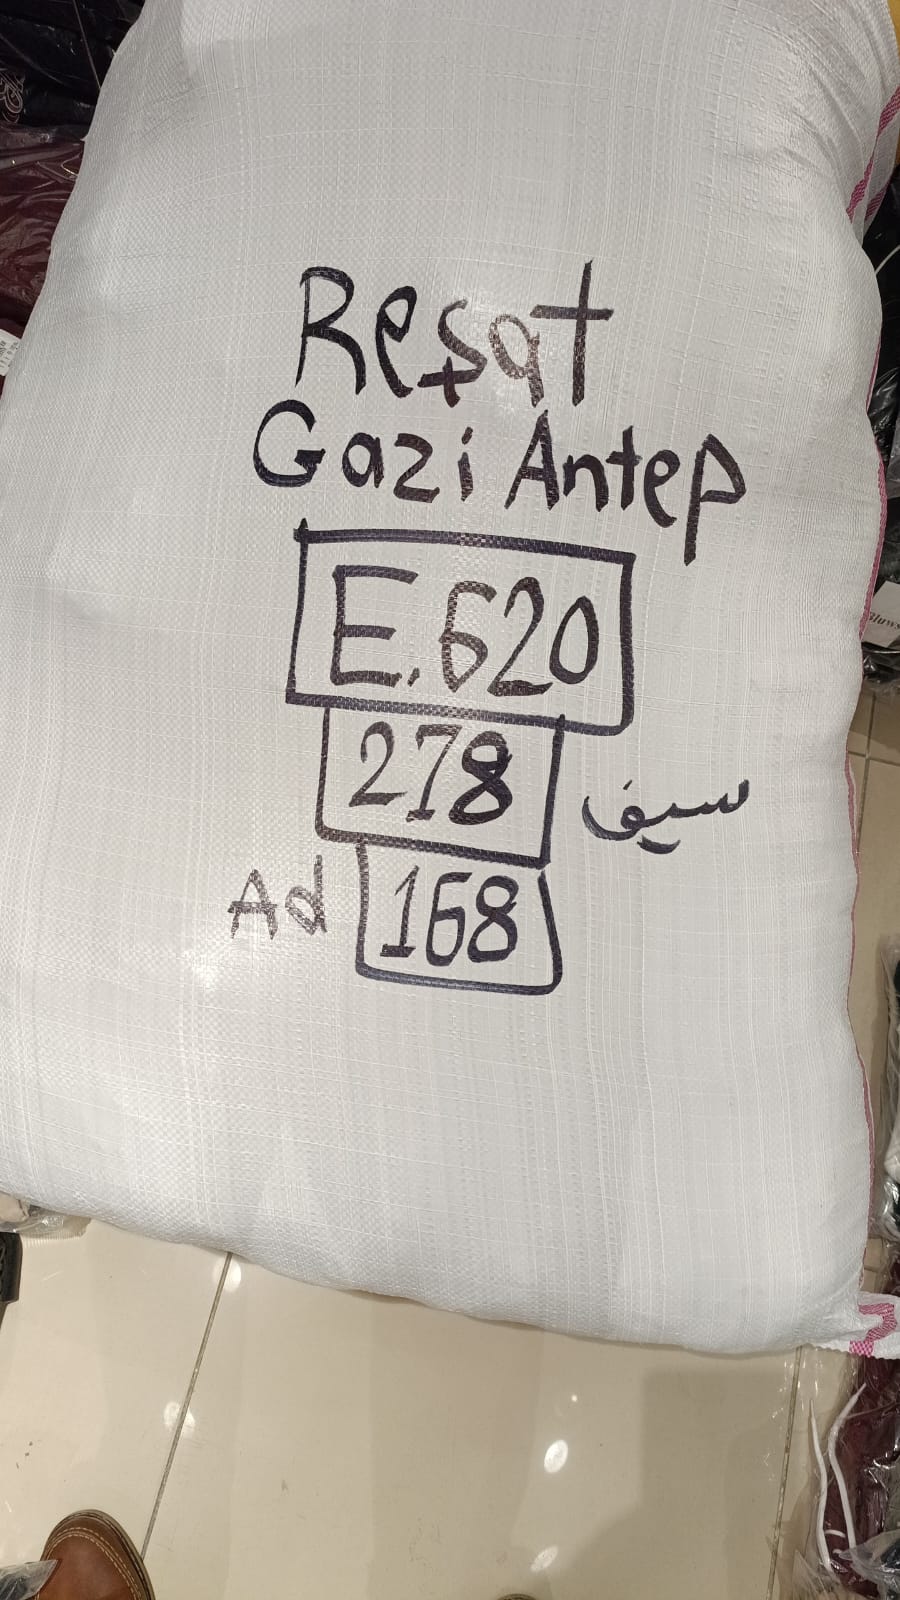 Reşat
Gazi Antep
E.620
278 سيف
Ad 168